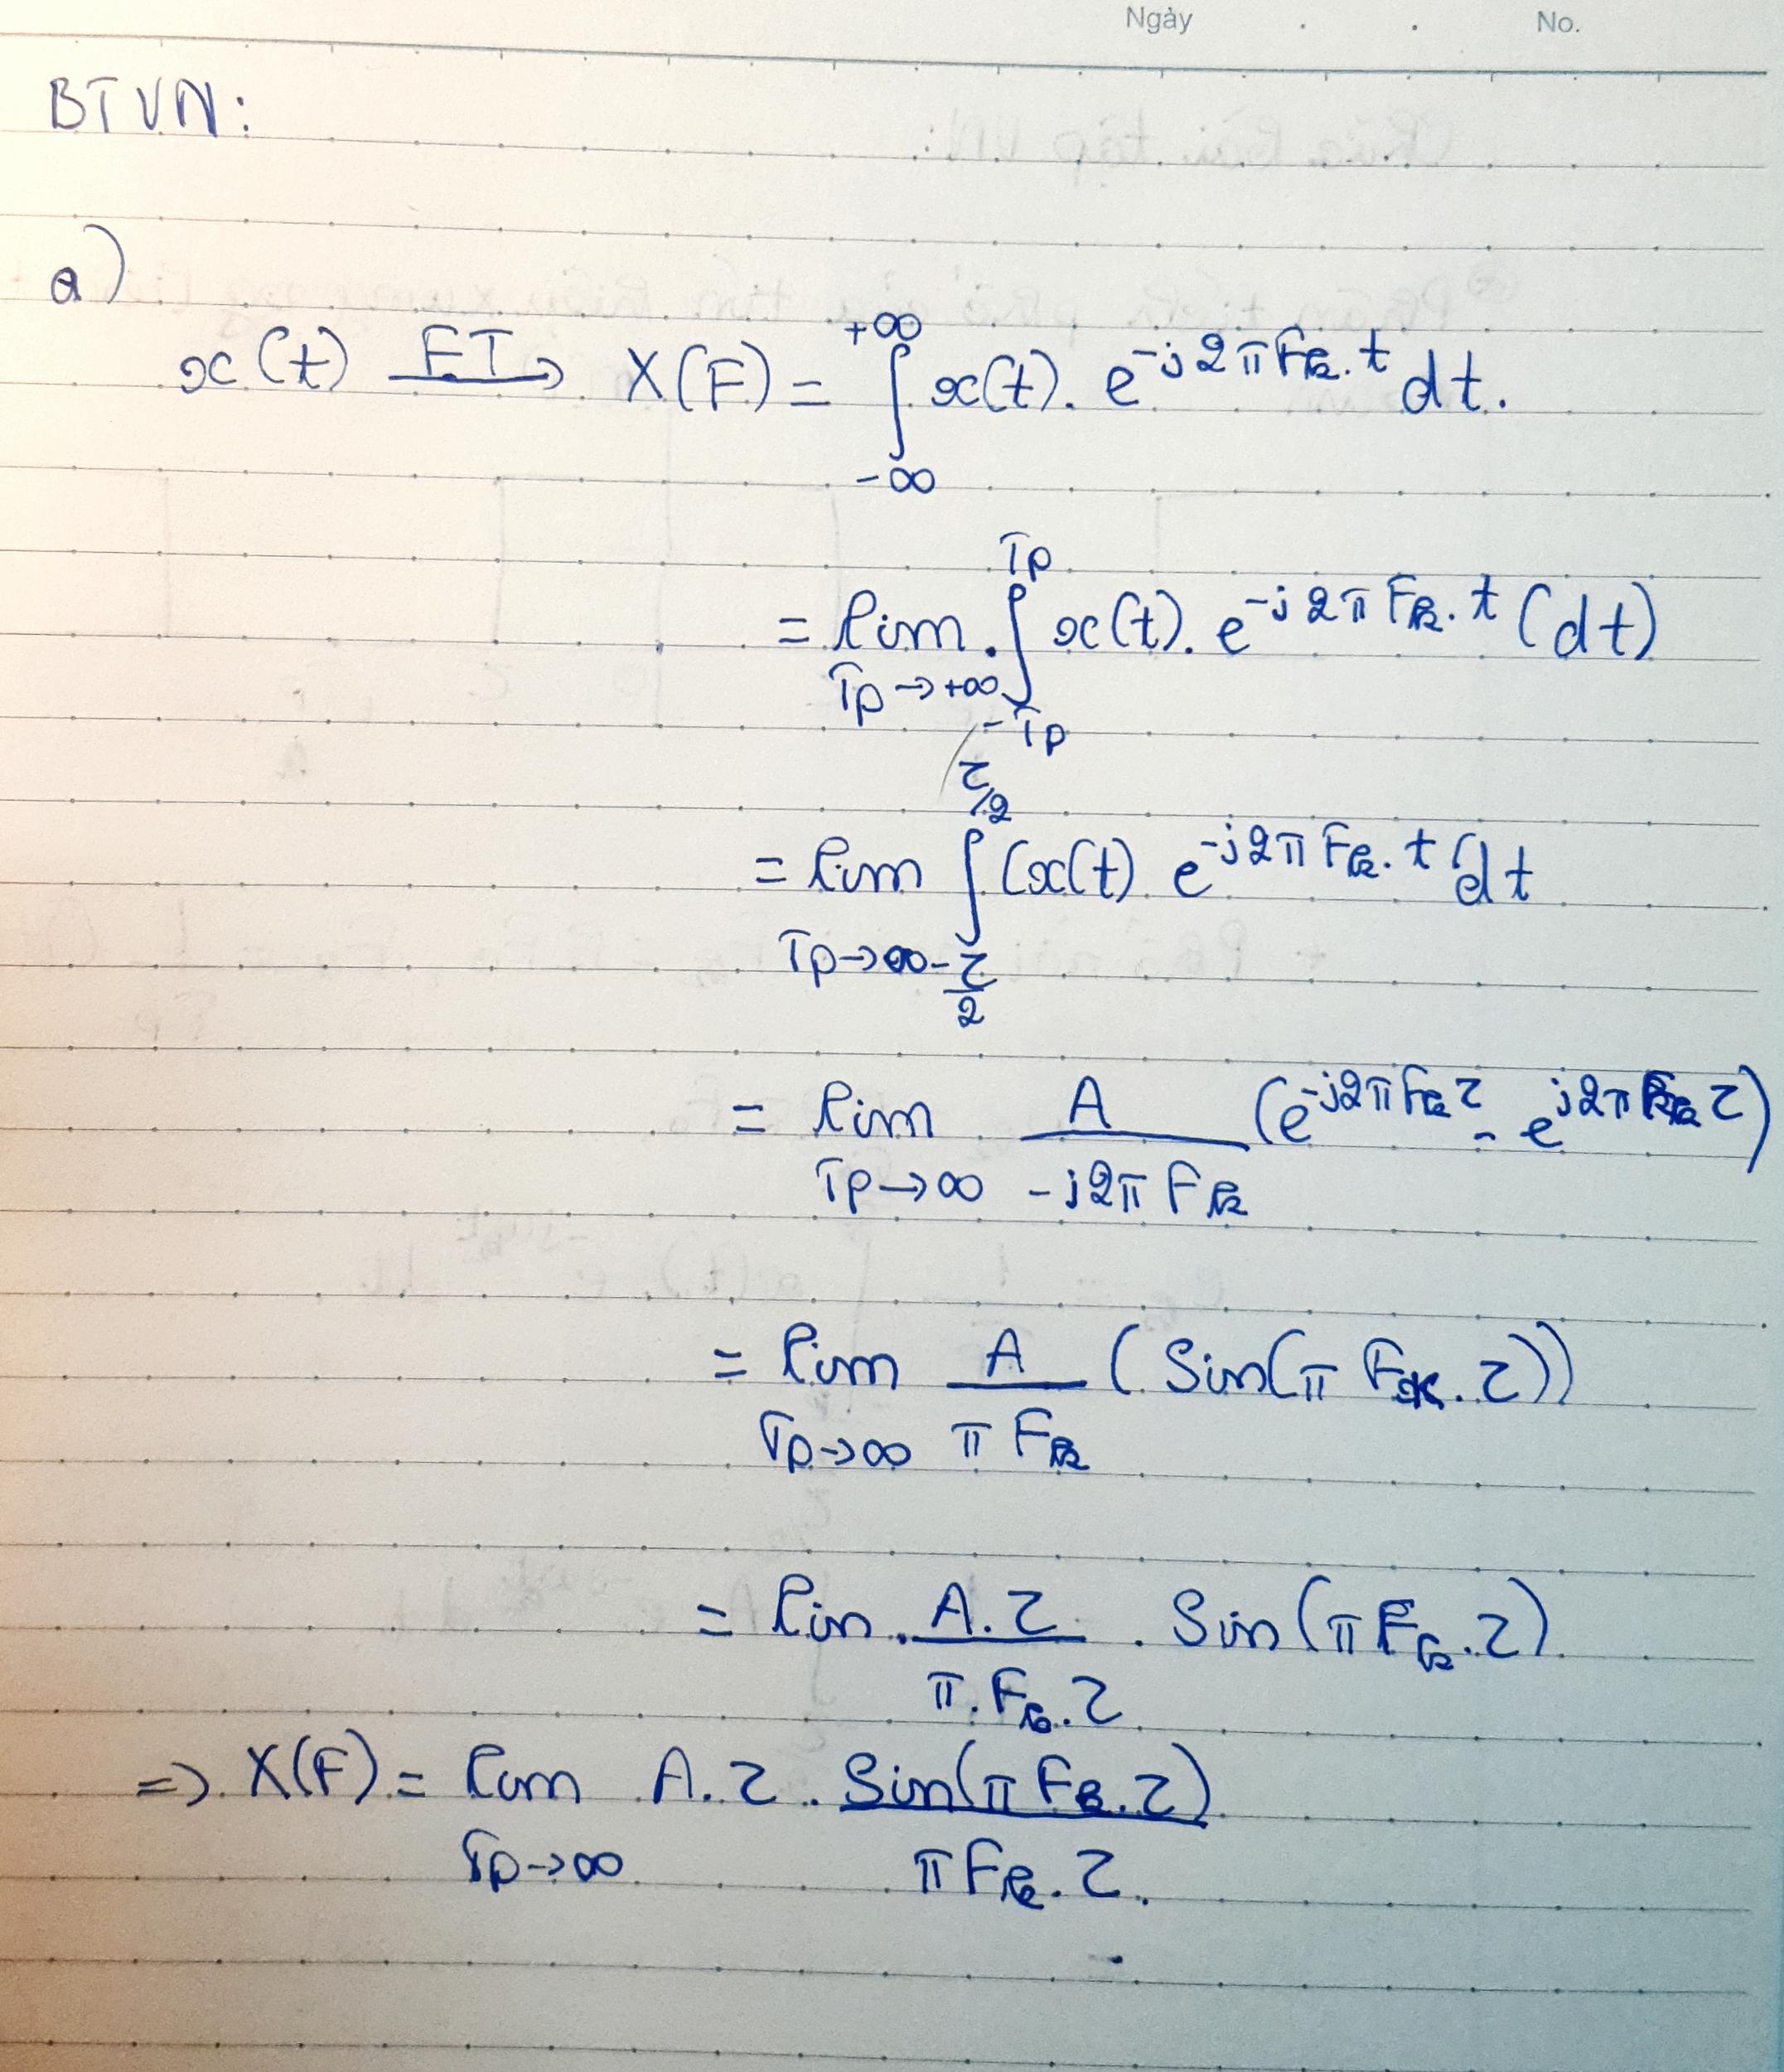 Ngày . . No.
BTVN:
a)
x(t) —FT→ X(F) = ∫_{-∞}^{+∞} x(t). e^{-j2πF_k.t} dt.
= lim_{Tp→+∞} . ∫_{-Tp}^{Tp} x(t). e^{-j2πF_k.t} (dt)
= lim_{Tp→∞} ∫_{-τ/2}^{τ/2} (x(t) e^{-j2πF_k.t} dt
= lim_{Tp→∞} A/(-j2πF_k) (e^{-j2πF_kτ} - e^{j2πF_kτ})
= lim_{Tp→∞} A/(πF_k) (Sin(πF_k.τ))
= lim . A.τ/(π.F_k.τ) . Sin(πF_k.τ)
=> X(F) = lim_{Tp→∞} A.τ . Sin(πF_k.τ)/(πF_k.τ).